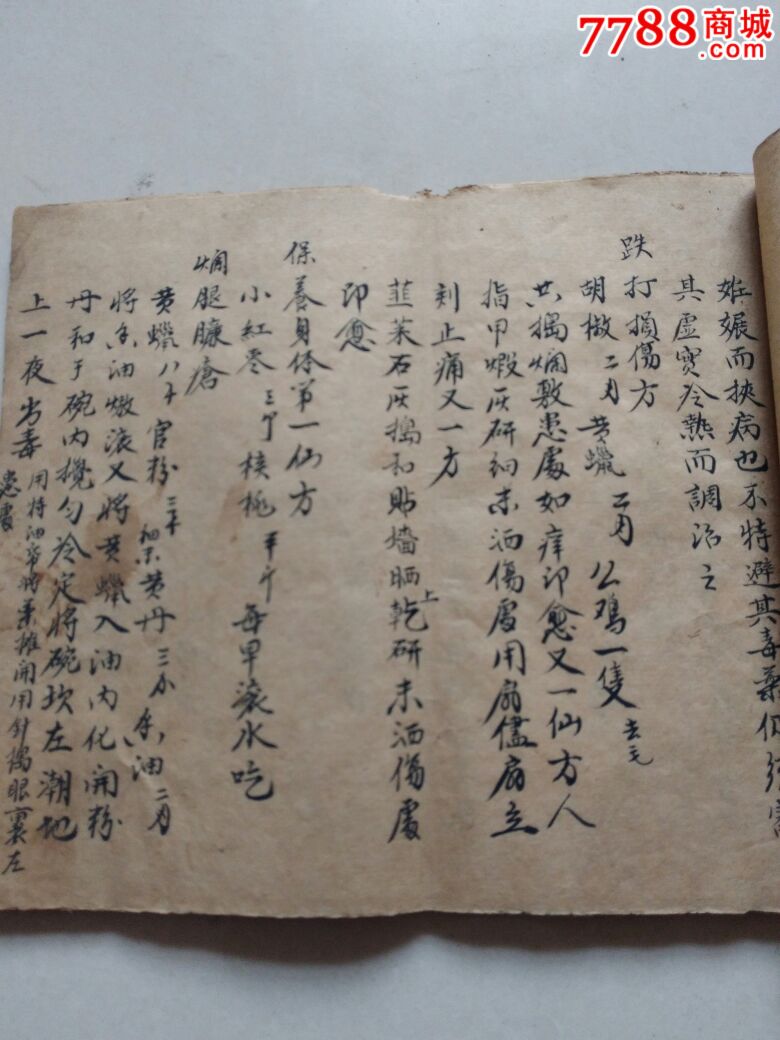 妊娠而挾病也不特避其毒藥但
其虛實冷熱而調治之
跌打損傷方
胡椒二月黄蠟二月公鸡一隻去毛
共搗爛敷患處如痒即愈又一仙方人
指甲煆灰研細末洒傷處用扇儘扇立
刻止痛又一方
韮菜石灰搗和貼墙上晒乾研末洒傷處
即愈
保養身体第一仙方
小紅枣三个核桃半斤每早滚水吃
爛腿臁瘡
黄蠟八个官粉三个細末黄丹三个香油二月
將香油墩滚又將黄蠟入油内化開粉
丹和于碗内攪匀冷定將碗坎左潮地
上一夜出毒用持油帋將葯摊開用針搗眼裹左
患處
7788商城
.com